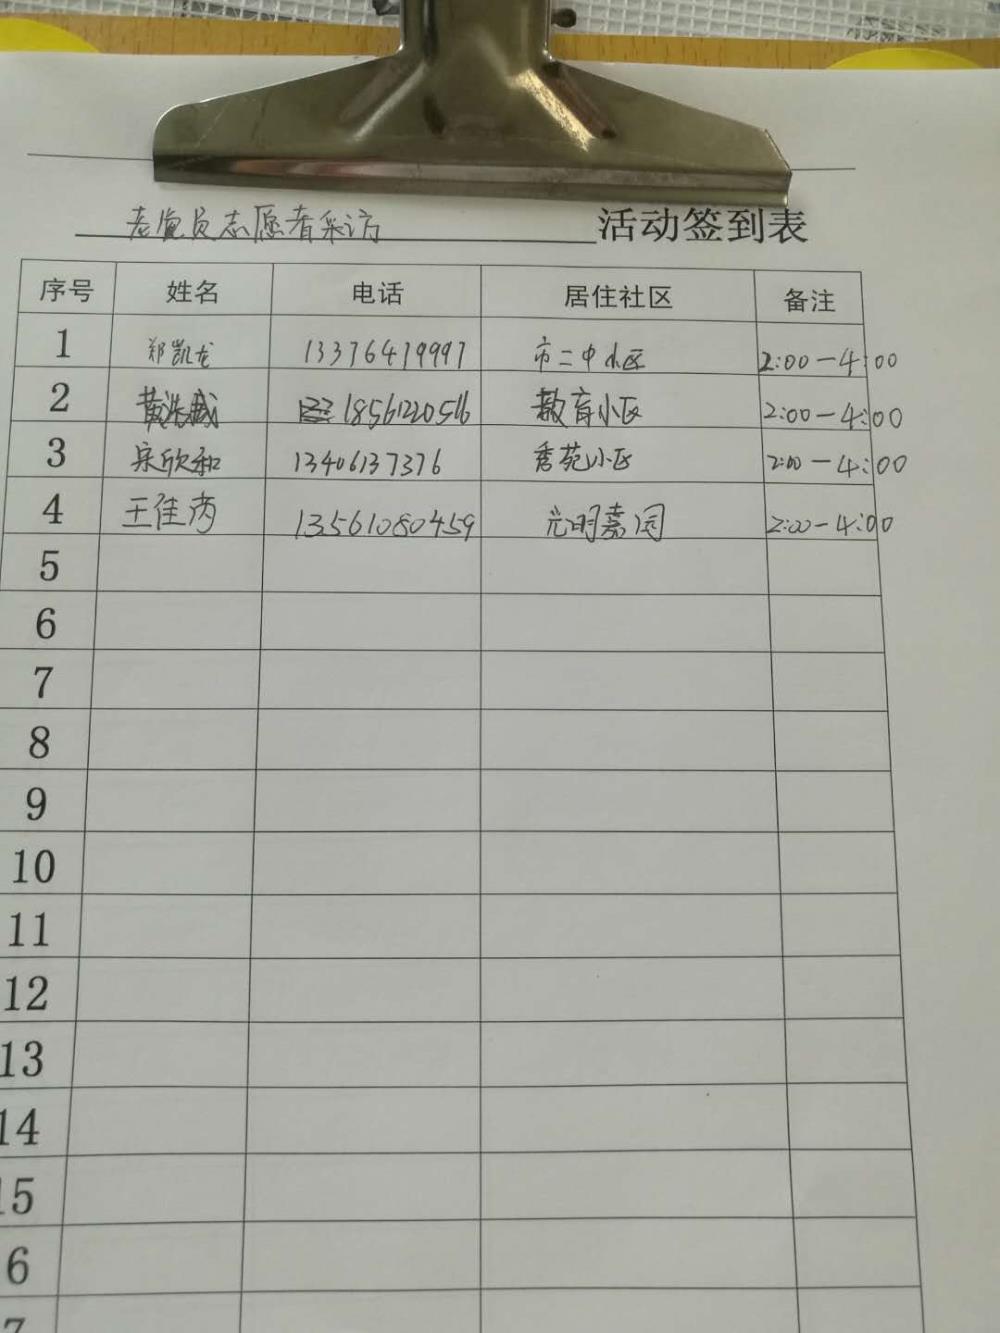 老党员志愿者采访 活动签到表
序号 姓名 电话 居住社区 备注
1 郑凯龙 13376419997 市二中小区 2:00-4:00
2 黄浩威 教育小区 2:00-4:00
3 宋欣和 13406137376 秀苑小区 2:00-4:00
4 王佳芮 13561080459 元明嘉园 2:00-4:00
5
6
7
8
9
10
11
12
13
14
15
6
7